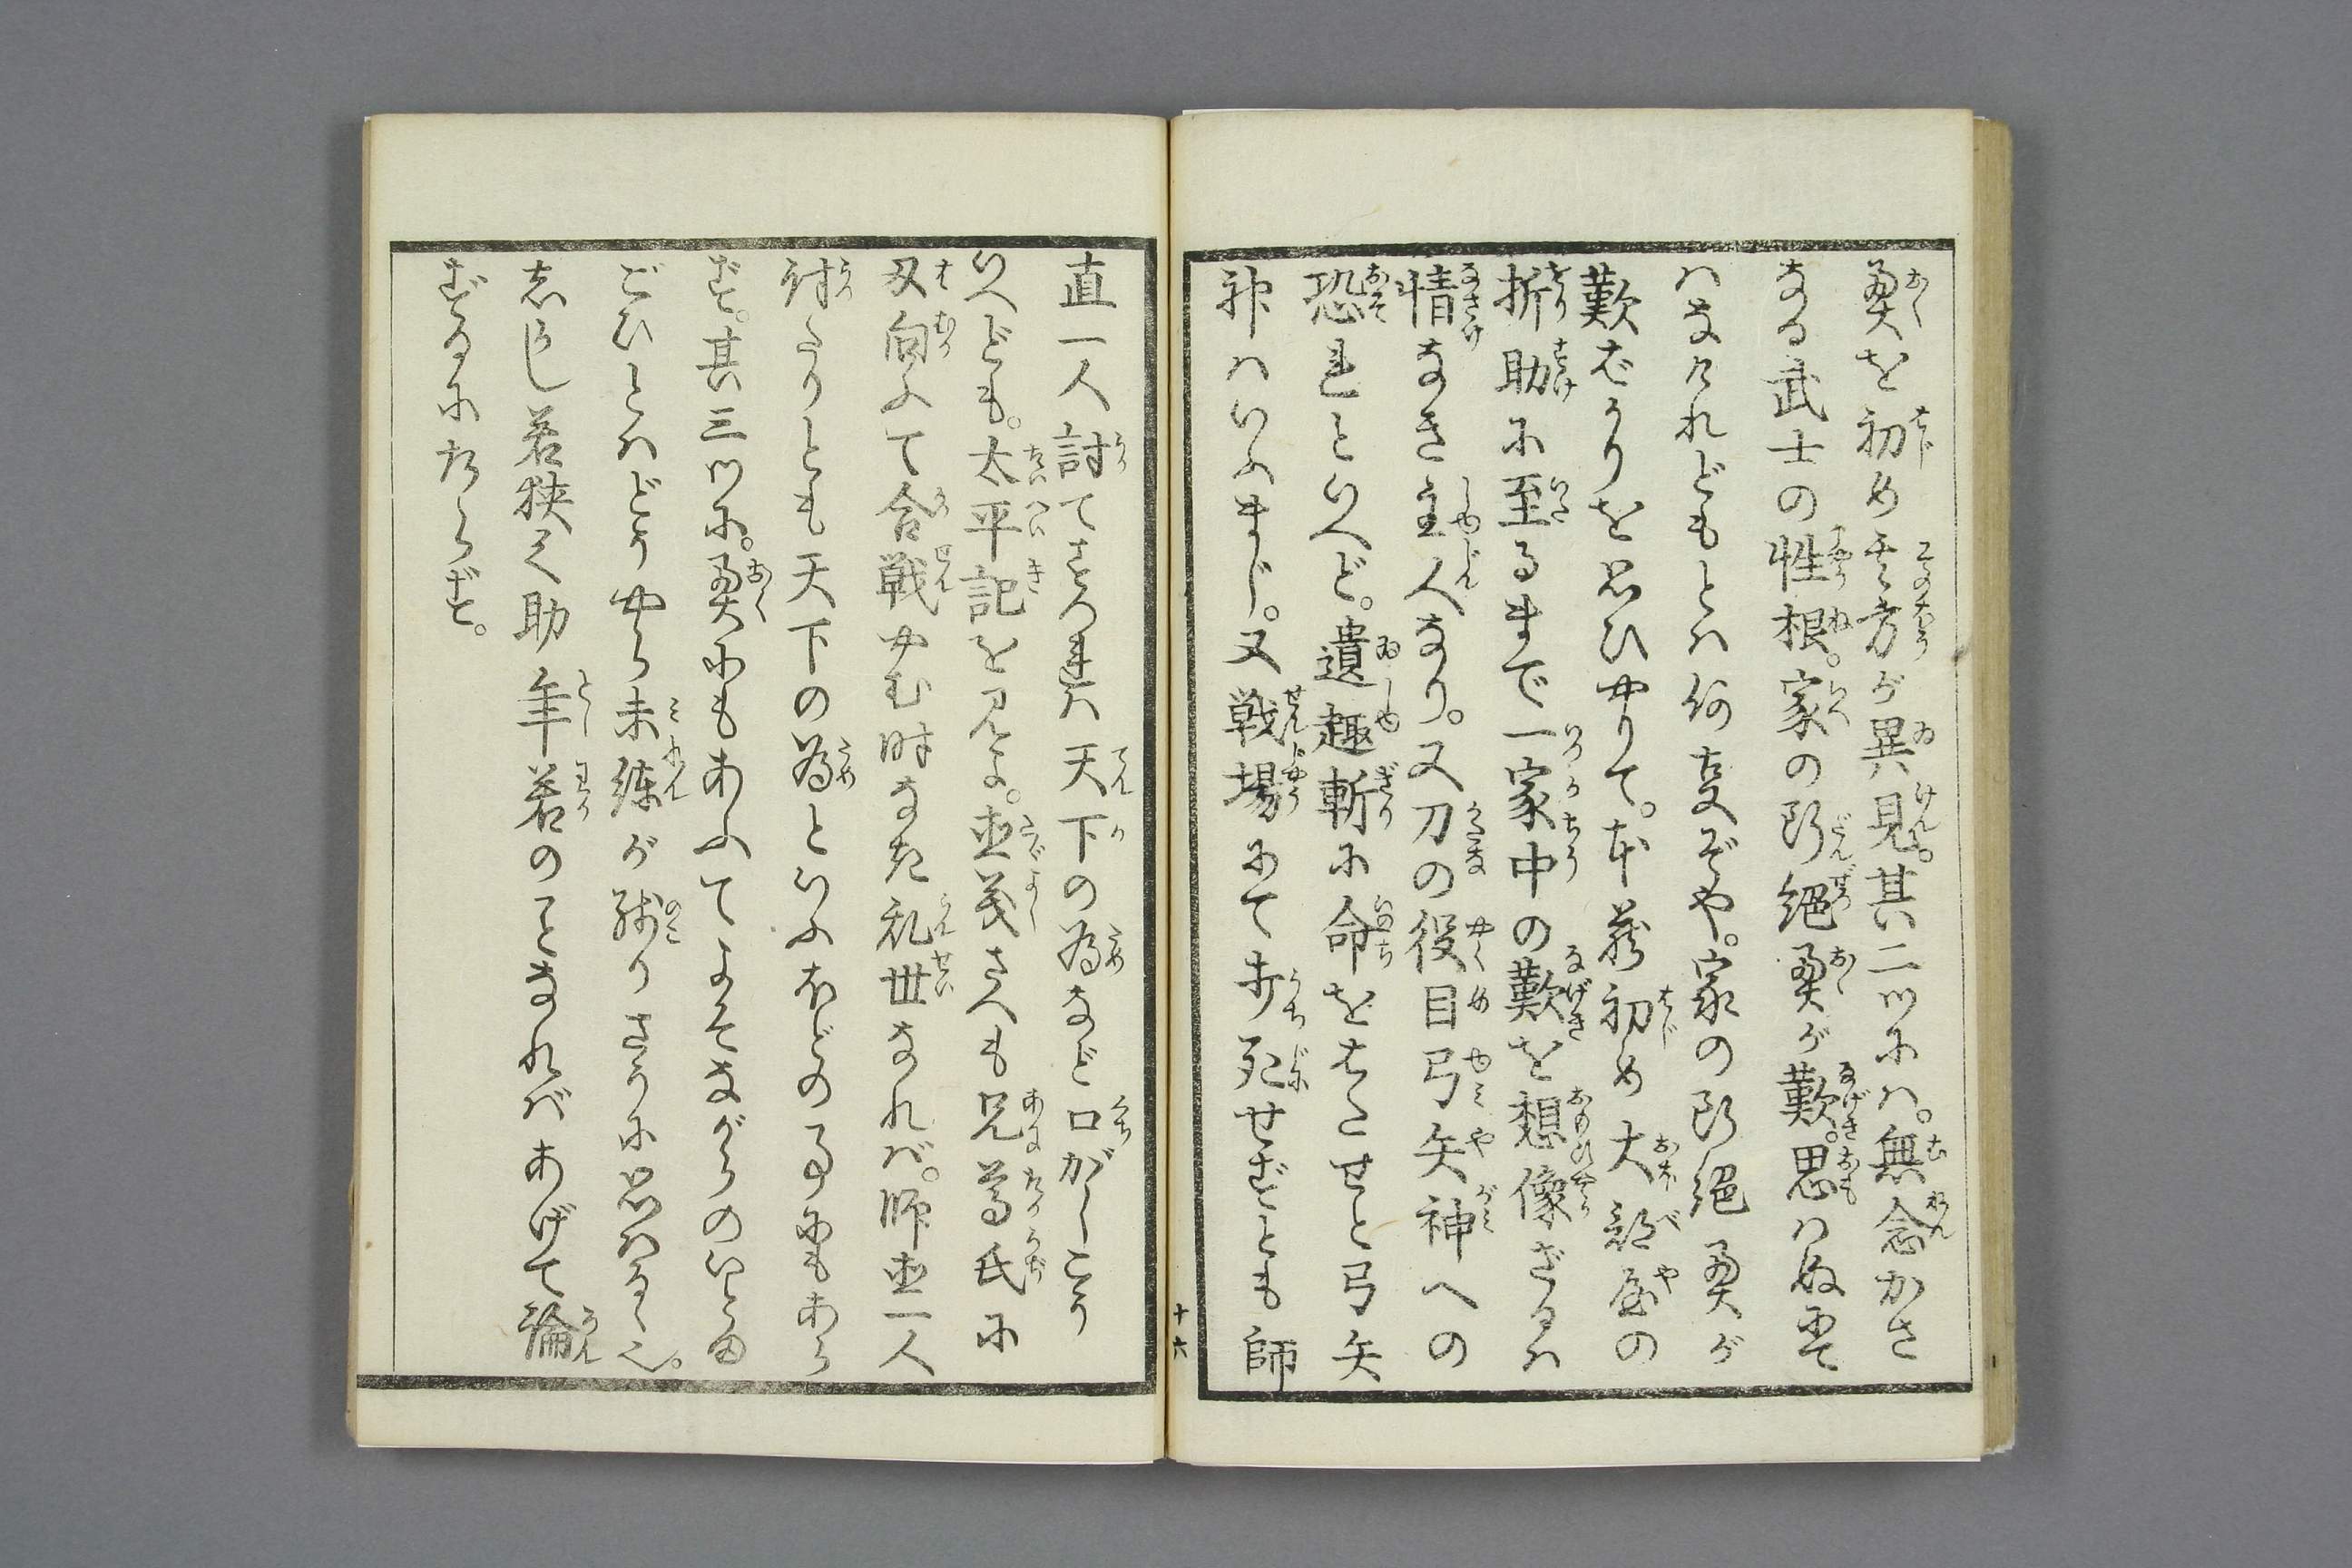 奥を初め其方が異見。其二ツにハ。無念かさ
なる武士の性根。家の断絶奥が歎。思ハぬにて
ハなけれどもとハ何事ぞや。家の断絶奥が
歎ばかりを思ひやりて。本蔵初め大部屋の
折助に至るまで一家中の歎を想像ざるハ
情なき主人なり。又刀の役目弓矢神への
恐れといへど。遺趣斬に命をはたせと弓矢
神ハいふまじ。又戦場にて討死せずとも師
十六
直一人討てさへ連ハ天下の為など口がしこう
いへども。太平記を見よ。直義さへも兄尊氏に
刃向ふて合戦やむ時なき乱世なれバ。師直一人
討たりとも天下の為といふほどの事にもあら
ず。其三ツに。奥にもあふてよそながらのいとま
ごひとハどうやら未練が残りさうに思ハるゝ也。
志かし若狭之助年若のことなれバあげて論
ずるにたらず。